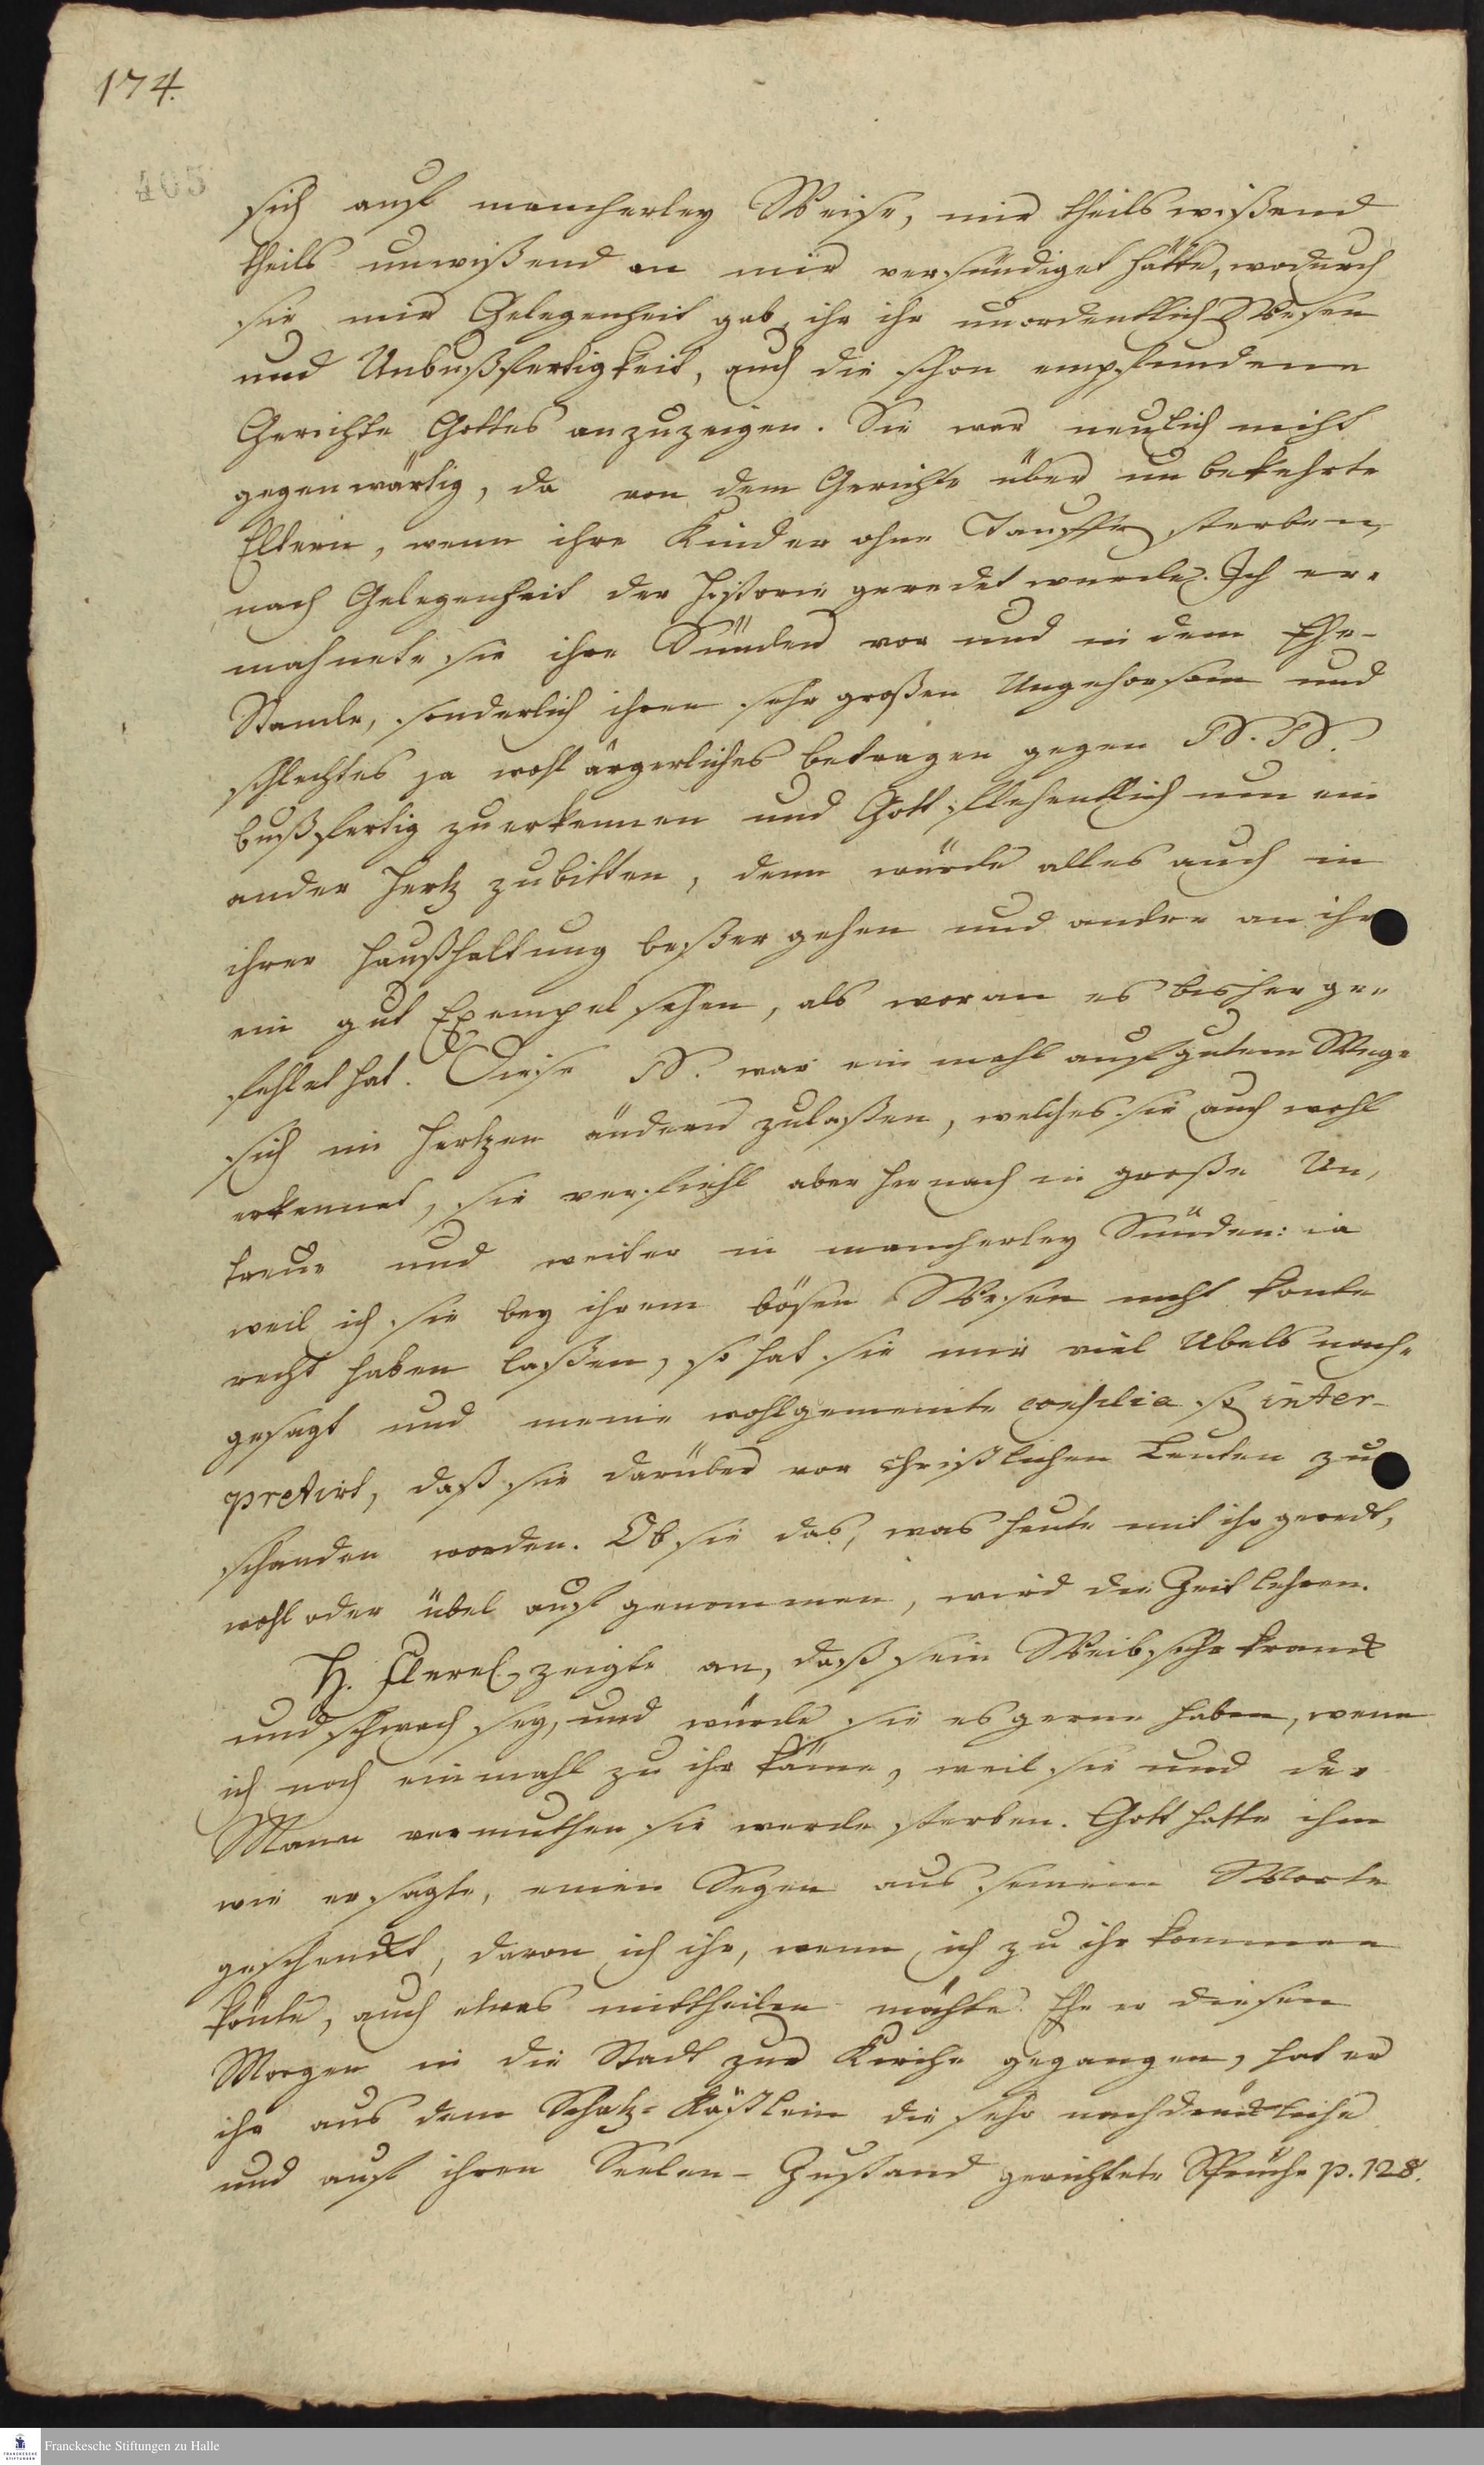 174.
405
sich auf mancherley Weise, mir theils wißend
theils unwißend an mir versündiget hätte, wodurch
sie mir Gelegenheit gab, ihr ihr unordentlich Wesen
und Unbußfertigkeit, auch die schon empfundene
Gerichte Gottes anzuzeigen. Sie war neulich nicht
gegenwärtig, da von dem Gerichte über unbekehrte
Eltern, wenn ihre Kinder ohne Tauffe sterben,
nach Gelegenheit der Historie geredet wurde. Ich er-
mahnete sie ihre Sünden vor und in dem Ehe-
Stande, sonderlich ihren sehr großen Ungehorsam und
schlechtes ja wohl ärgerliches betragen gegen N. N.
bußfertig zuerkennen und Gott flehentlich um ein
ander Hertz zubitten, denn würde alles auch in
ihrer Haußhaltung beßer gehen und andre an ihr
ein gut Exempel sehen, als woran es bisher ge-
fehlet hat. Diese N. war ein mahl auf gutem Wege
sich im Hertzen ändern zulaßen, welches sie auch wohl
erkennet, sie verfiehl aber hernach in große Un-
treue und weiter in mancherley Sünden: ia
weil ich sie bey ihrem bösen Wesen nicht konte
recht haben laßen, so hat sie mir viel Ubels nach-
gesagt und meine wohlgemeinte consilia so inter-
pretirt, daß sie darüber vor christlichen Leuten zu
schanden worden. Ob sie das, was heute mit ihr geredt,
wohl oder übel auf genommen, wird die Zeit lehren.
H. Flerel zeigte an, daß sein Weib sehr kranck
und schwach sey, und würde sie es gerne haben, wenn
ich noch einmahl zu ihr käme, weil sie und der
Mann vermuthen sie werde sterben. Gott hatte ihm
wie er sagte, einen Segen aus seinem Worte
geschenckt, davon ich ihr, wenn ich zu ihr kommen
könte, auch etwas mittheilen möchte. Ehe er diesen
Morgen in die Stadt zur Kirche gegangen, hat er
ihr aus dem Schatz-Kästlein die sehr nachdrückliche
und auf ihren Seelen-Zustand gerichtete Sprüche p. 128.
FRANCKESCHE STIFTUNGEN
Franckesche Stiftungen zu Halle